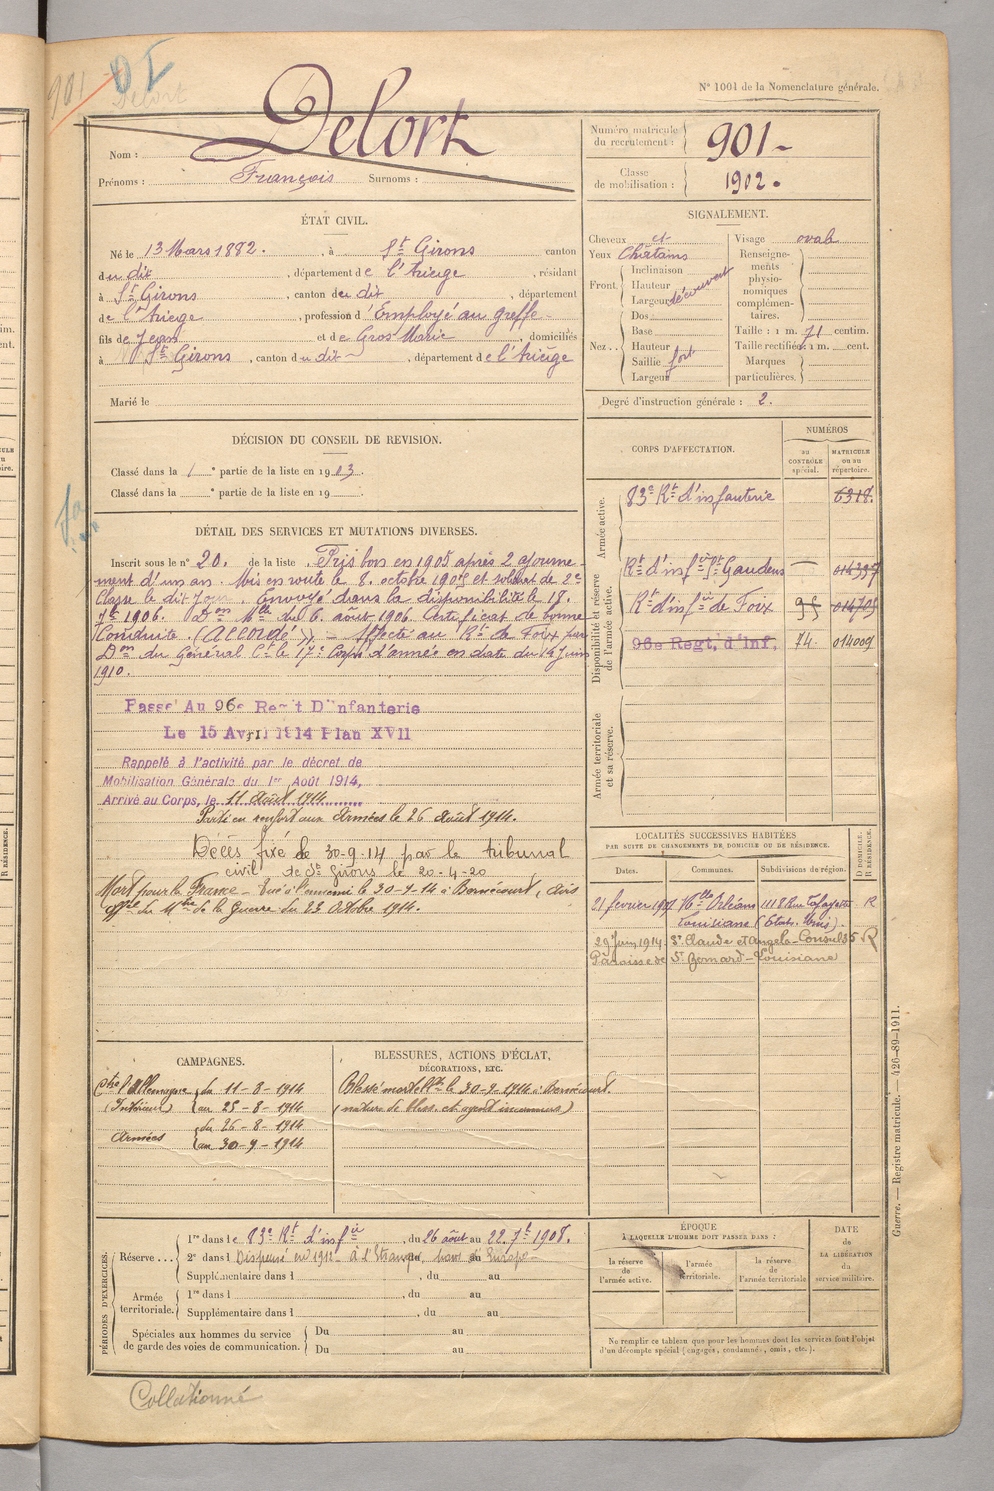 901
Delort
N° 1001 de la Nomenclature générale.
Nom : Delort
Prénoms : François Surnoms :
Numéro matricule du recrutement : 901
Classe de mobilisation : 1902.
ÉTAT CIVIL.
Né le 13 Mars 1882. , à St Girons canton
du dit , département de l'Ariège , résidant
à St Girons , canton du dit , département
de l'Ariège , profession d'Employé au greffe
fils de Jean et de Gros Marie , domiciliés
à St Girons , canton du dit , département de l'Ariège
Marié le
SIGNALEMENT.
Cheveux et
Yeux Châtains
Front. Inclinaison
Hauteur
Largeur découvert
Nez. Dos
Base
Hauteur
Saillie fort
Largeur
Visage ovale
Renseignements physionomiques complémentaires.
Taille : 1 m. 71 centim.
Taille rectifiée : 1 m. cent.
Marques particulières.
Degré d'instruction générale : 2.
DÉCISION DU CONSEIL DE REVISION.
Classé dans la 1 e partie de la liste en 1903.
Classé dans la e partie de la liste en 19 .
DÉTAIL DES SERVICES ET MUTATIONS DIVERSES.
Inscrit sous le n° 20. de la liste . Pris bon en 1905 après 2 ajourne-
ment d'un an. Mis en route le 8. octobre 1905 et soldat de 2e
Classe le dit Jour. Envoyé dans la disponibilité le 18.
7bre 1906. Don Mlle du 6. août 1906. Certificat de bonne
Conduite. (Accordé) Affecté au Rt de Foix par
Don du Général Ct le 17e Corps d'armée en date du 14 Juin
1910.
Passé Au 96e Regt D'Infanterie
Le 15 Avril 1914 Plan XVII
Rappelé à l'activité par le décret de
Mobilisation Générale du 1er Août 1914,
Arrivé au Corps, le 11 Août 1914
Parti en renfort aux Armées le 26 Août 1914.
Décès fixé le 30-9-14 par le tribunal
civil de St Girons le 20-4-20
Mort pour la France - Tué à l'ennemi le 30-9-14 à Bernécourt, avis
offel du Mtre de la Guerre du 23 Octobre 1914.
CORPS D'AFFECTATION.
NUMÉROS
au CONTRÔLE spécial.
MATRICULE ou au répertoire.
Armée active.
83e Rt d'infanterie 6318.
Disponibilité et réserve de l'armée active.
Rt d'infie St Gaudens
Rt d'infie de Foix 95 014705
96e Regt. d'Inf. 74 014009
Armée territoriale et sa réserve.
LOCALITÉS SUCCESSIVES HABITÉES
PAR SUITE DE CHANGEMENTS DE DOMICILE OU DE RÉSIDENCE.
Dates. Communes. Subdivisions de région. D DOMICILE. R RÉSIDENCE.
21 février Nlle Orléans 1118 Rue Lafayette R
Louisiane (États-Unis)
29 Juin 1914 St Claude et Angela - R
Paroisse de St Bernard - Louisiane
CAMPAGNES.
Ctre l'Allemagne du 11 - 8 - 1914
(Intérieur) au 25 - 8 - 1914
Armées du 26 - 8 - 1914
au 30 - 9 - 1914
BLESSURES, ACTIONS D'ÉCLAT, DÉCORATIONS, ETC.
Blessé mortellt le 30-9-1914 à Bernécourt.
(nature de bless. et agent inconnus)
PÉRIODES D'EXERCICES.
Réserve. 1re dans le 83e Rt d'infie , du 26 août au 22. 7bre 1908.
2e dans l Dispensé en 1912 - à l'Étranger, hors Europe
Supplémentaire dans l , du au
Armée territoriale. 1re dans l , du au
Supplémentaire dans l , du au
Spéciales aux hommes du service de garde des voies de communication. Du au
Du au
ÉPOQUE
À LAQUELLE L'HOMME DOIT PASSER DANS :
la réserve de l'armée active.
l'armée territoriale.
la réserve de l'armée territoriale
DATE de LA LIBÉRATION du service militaire.
Ne remplir ce tableau que pour les hommes dont les services font l'objet
d'un décompte spécial (engagés, condamnés, omis, etc.).
Guerre. — Registre matricule. — 426-89-1911.
Collationné